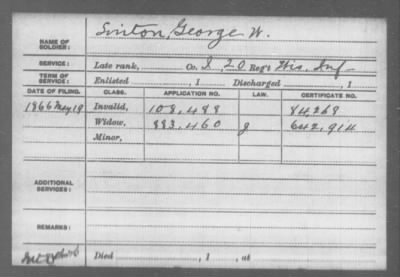 NAME OF SOLDIER: Sinton, George W.
SERVICE: Late rank, Co. I, 20 Reg't Wis. Inf
TERM OF SERVICE: Enlisted , 1 Discharged , 1
DATE OF FILING. CLASS. APPLICATION NO. LAW. CERTIFICATE NO.
1866 May 19 Invalid, 108,488 84,268
Widow, 883,460 g 642,914
Minor,
ADDITIONAL SERVICES:
REMARKS:
Died , 1 , at